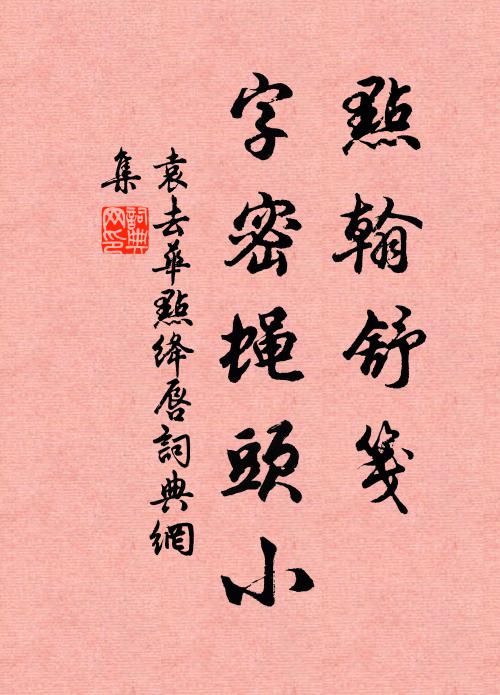 點翰舒箋
字密蝇頭小
袁去華點绛唇詞典網
集
詞典
网印